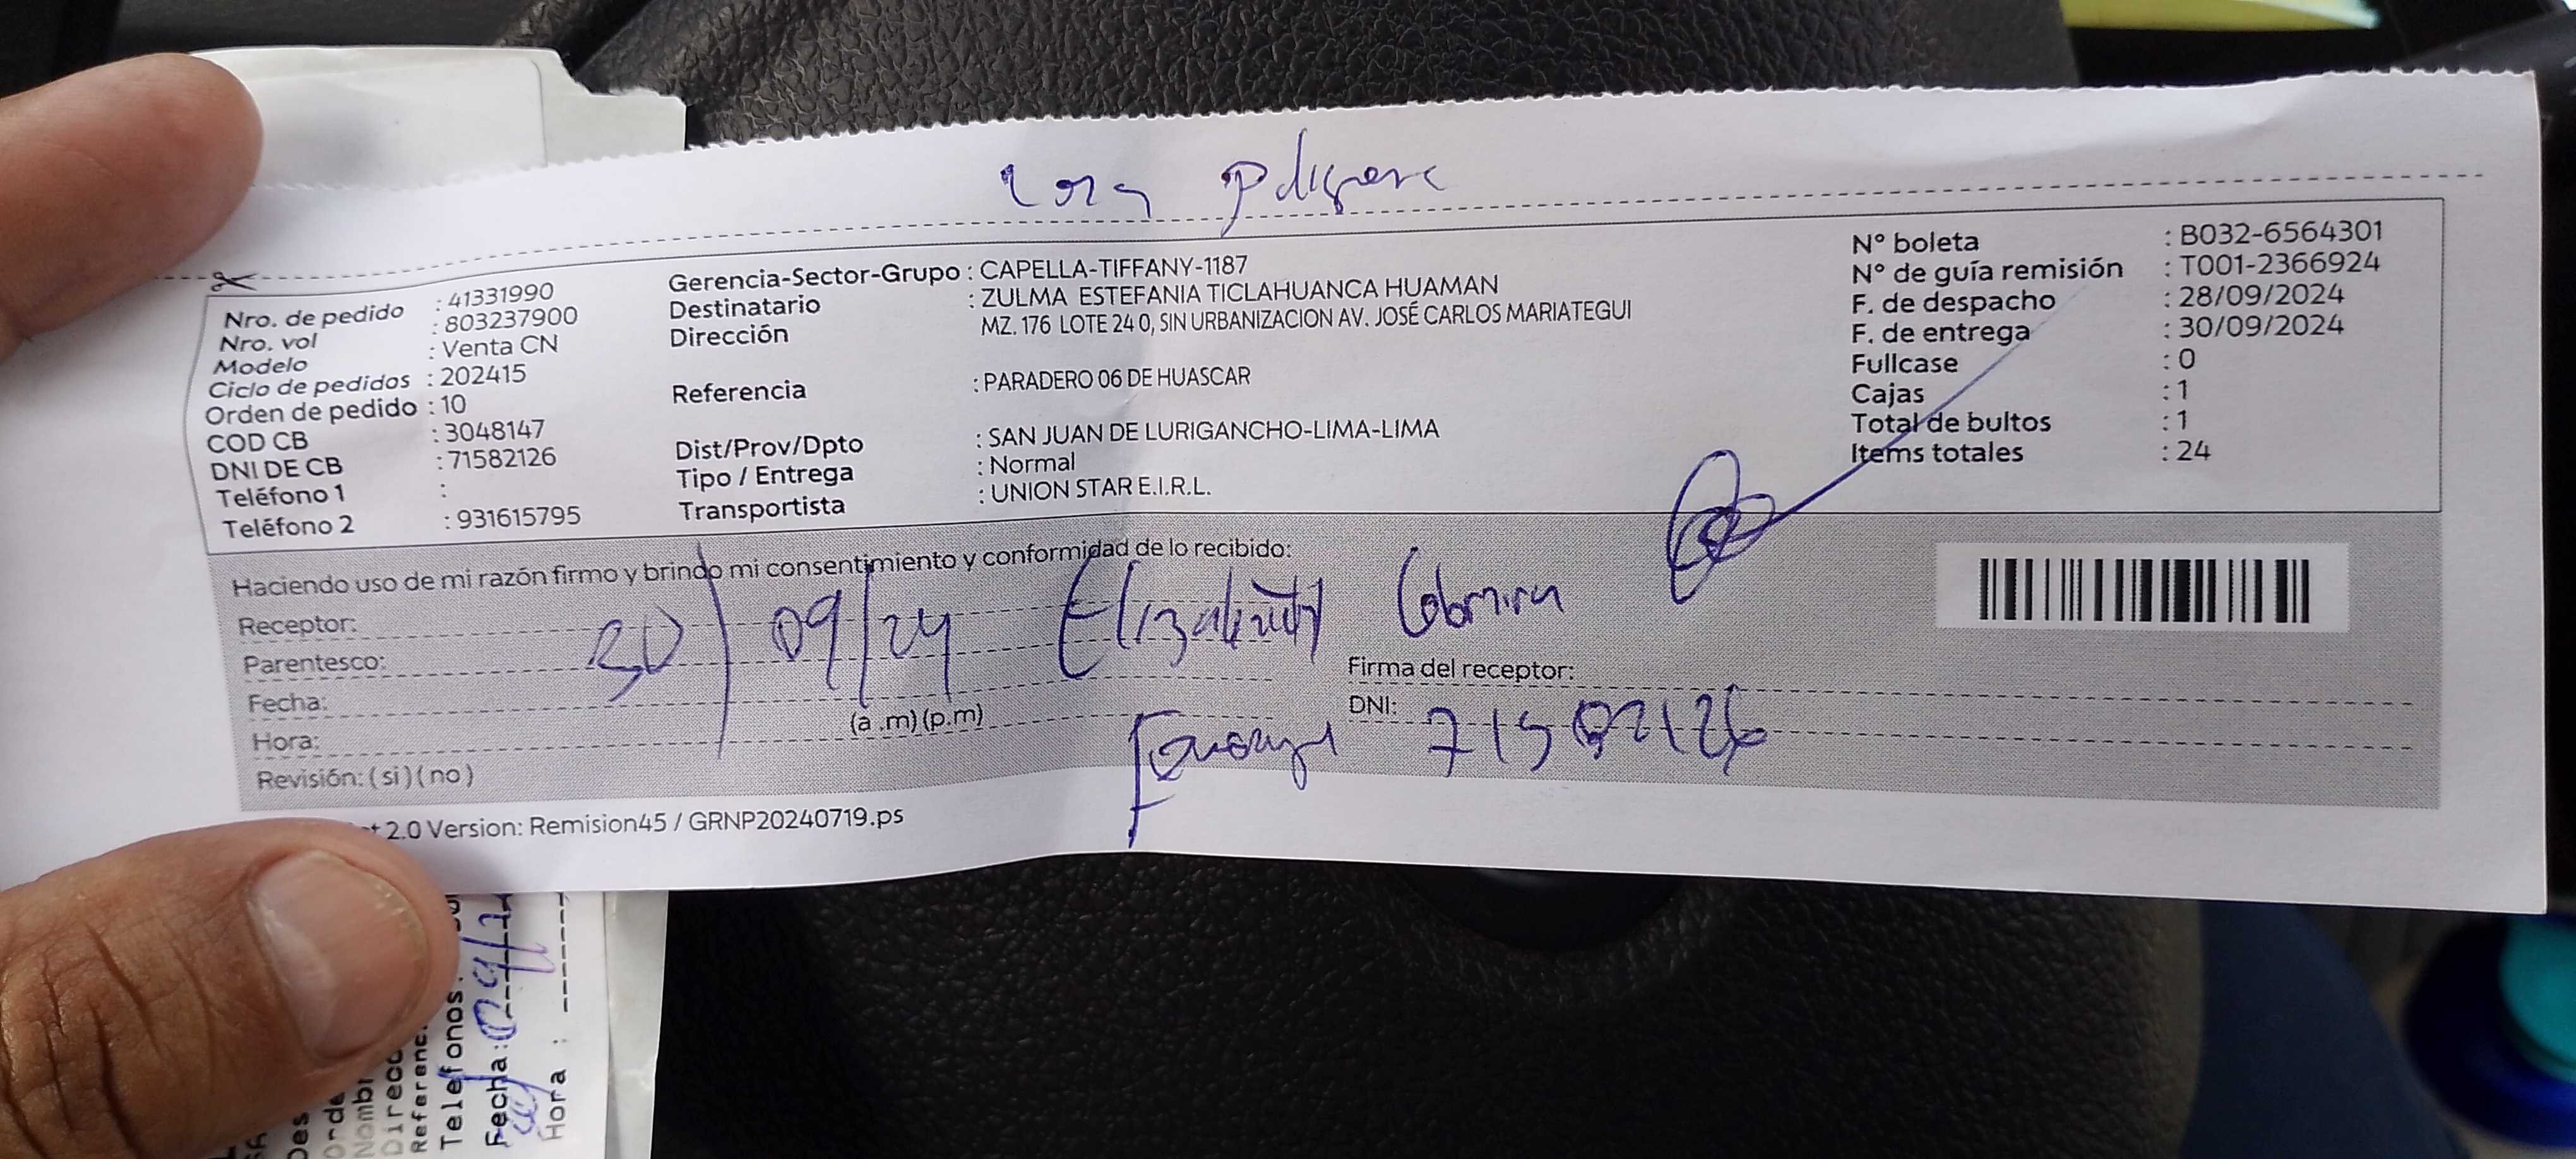 Nro. de pedido : 41331990
Nro. vol : 803237900
Modelo : Venta CN
Ciclo de pedidos : 202415
Orden de pedido : 10
COD CB : 3048147
DNI DE CB : 71582126
Teléfono 1 :
Teléfono 2 : 931615795
Gerencia-Sector-Grupo : CAPELLA-TIFFANY-1187
Destinatario : ZULMA ESTEFANIA TICLAHUANCA HUAMAN
Dirección MZ. 176 LOTE 24 0, SIN URBANIZACION AV. JOSÉ CARLOS MARIATEGUI
Referencia : PARADERO 06 DE HUASCAR
Dist/Prov/Dpto : SAN JUAN DE LURIGANCHO-LIMA-LIMA
Tipo / Entrega : Normal
Transportista : UNION STAR E.I.R.L.
N° boleta : B032-6564301
N° de guía remisión : T001-2366924
F. de despacho : 28/09/2024
F. de entrega : 30/09/2024
Fullcase : 0
Cajas : 1
Total de bultos : 1
Items totales : 24
Haciendo uso de mi razón firmo y brindo mi consentimiento y conformidad de lo recibido:
Receptor:
Parentesco:
Fecha:
30/09/24 Elizabeth
Hora: (a.m)(p.m)
Revisión: (si)(no)
Firma del receptor:
DNI: 71582126
2.0 Version: Remision45 / GRNP20240719.ps
Telefonos:
Fecha:
Hora :